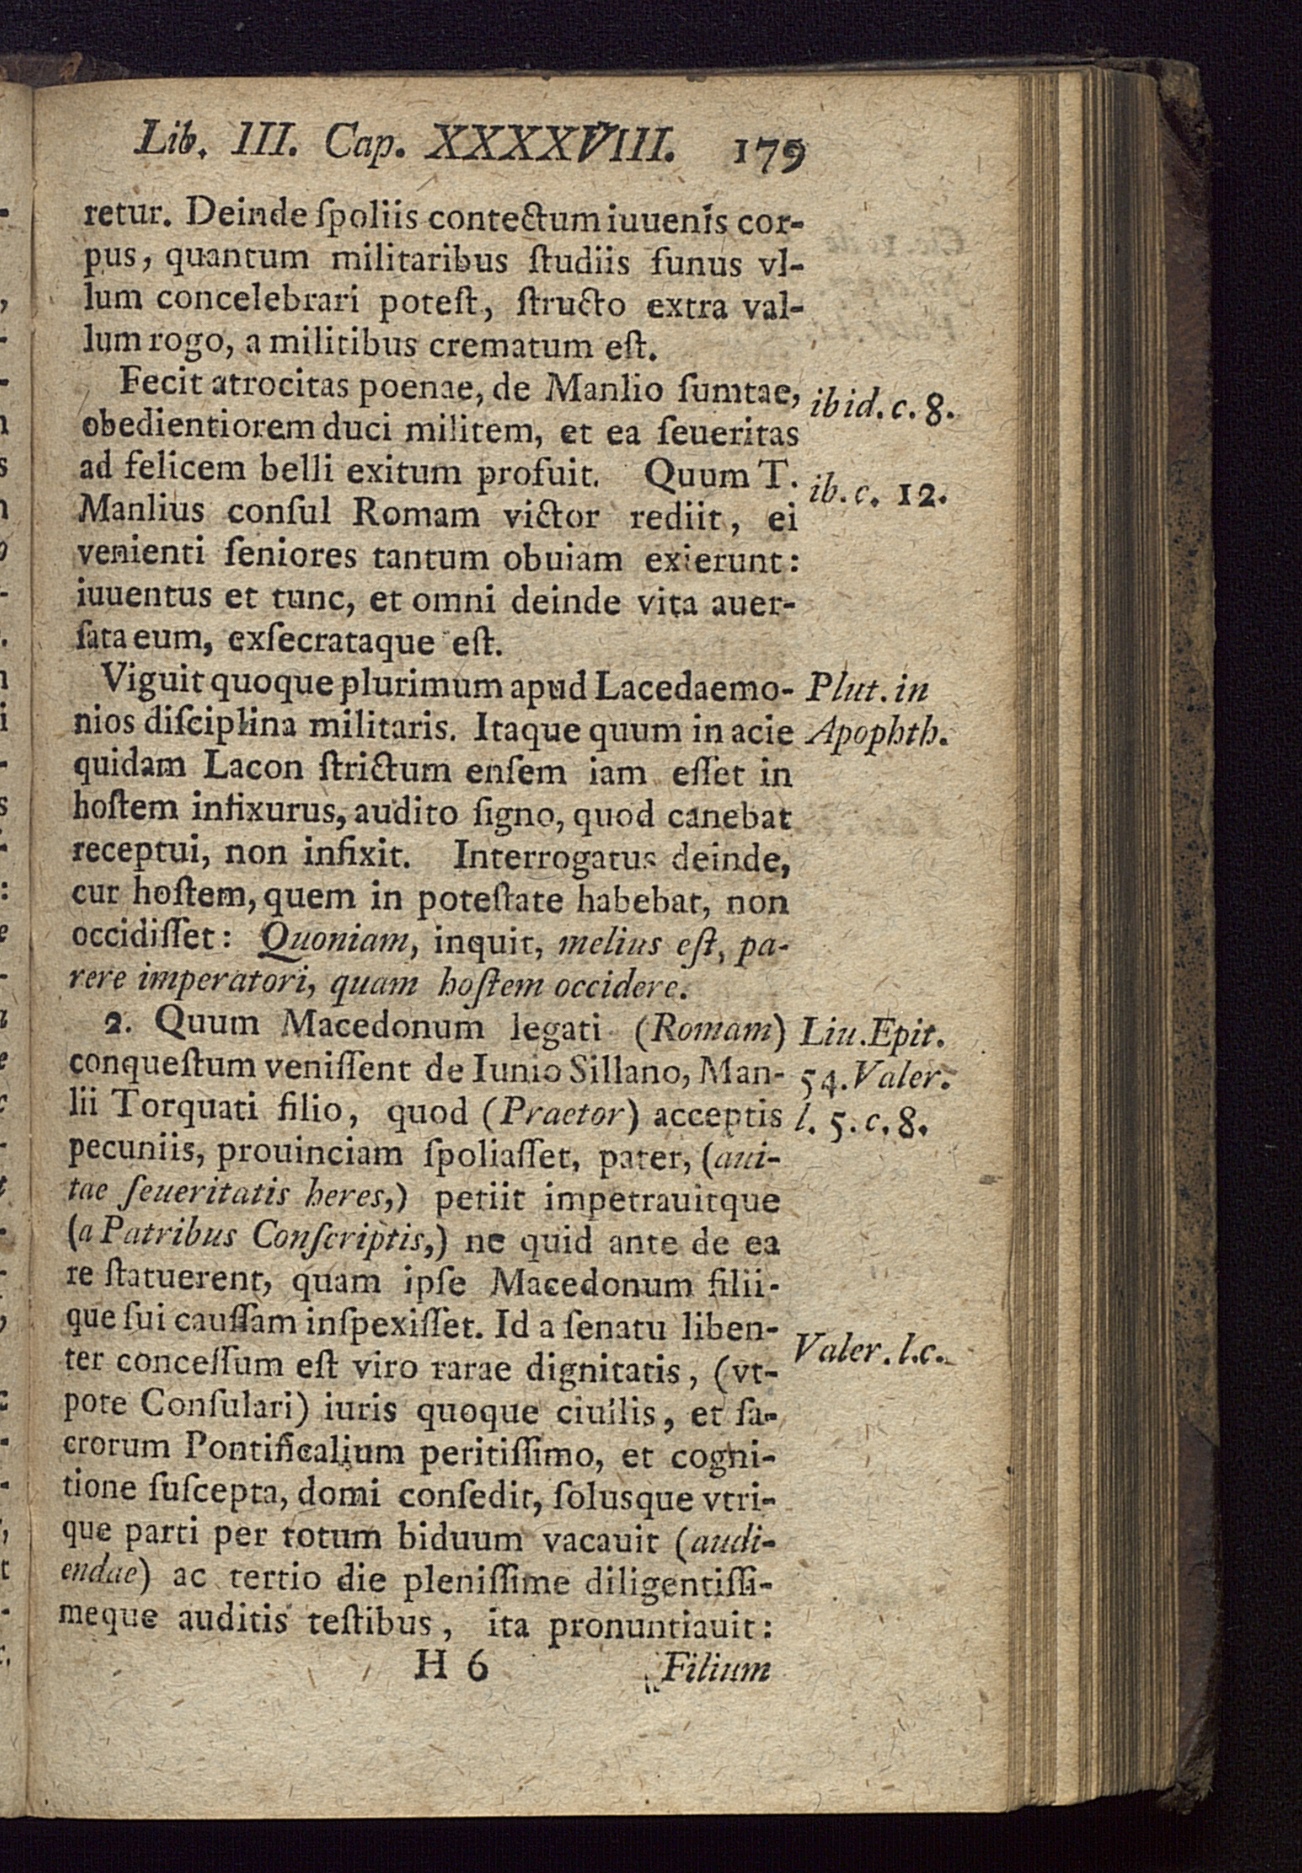 Lib. III. Cap. XXXXVIII. 179
retur. Deinde ſpoliis contectum iuuenis cor-
pus, quantum militaribus ſtudiis funus vl-
lum concelebrari poteſt, ſtructo extra val-
lum rogo, a militibus crematum eſt.
Fecit atrocitas poenae, de Manlio ſumtae, ibid. c. 8.
obedientiorem duci militem, et ea ſeueritas
ad felicem belli exitum profuit. Quum T. ib. c. 12.
Manlius conſul Romam victor rediit, ei
venienti ſeniores tantum obuiam exierunt:
iuuentus et tunc, et omni deinde vita auer-
ſata eum, exſecrataque eſt.
Viguit quoque plurimum apud Lacedaemo- Plut. in
nios diſciplina militaris. Itaque quum in acie Apophth.
quidam Lacon ſtrictum enſem iam eſſet in
hoſtem infixurus, audito ſigno, quod canebat
receptui, non infixit. Interrogatus deinde,
cur hoſtem, quem in poteſtate habebat, non
occidiſſet: Quoniam, inquit, melius eſt, pa-
rere imperatori, quam hoſtem occidere.
2. Quum Macedonum legati (Romam) Liu. Epit.
conqueſtum veniſſent de Iunio Sillano, Man- 54. Valer.
lii Torquati filio, quod (Praetor) acceptis l. 5. c. 8.
pecuniis, prouinciam ſpoliaſſet, pater, (aui-
tae ſeueritatis heres,) petiit impetrauitque
(a Patribus Conſcriptis,) ne quid ante de ea
re ſtatuerent, quam ipſe Macedonum filii-
que ſui cauſſam inſpexiſſet. Id a ſenatu liben-
ter conceſſum eſt viro rarae dignitatis, (vt- Valer. l.c.
pote Conſulari) iuris quoque ciuilis, et ſa-
crorum Pontificalium peritiſſimo, et cogni-
tione ſuſcepta, domi conſedit, ſolusque vtri-
que parti per totum biduum vacauit (audi-
endae) ac tertio die pleniſſime diligentiſſi-
meque auditis teſtibus, ita pronuntiauit:
H 6 Filium